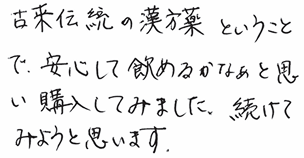 古来伝統の漢方薬ということ
で、安心して飲めるかなぁと思
い購入してみました。続けて
みようと思います。